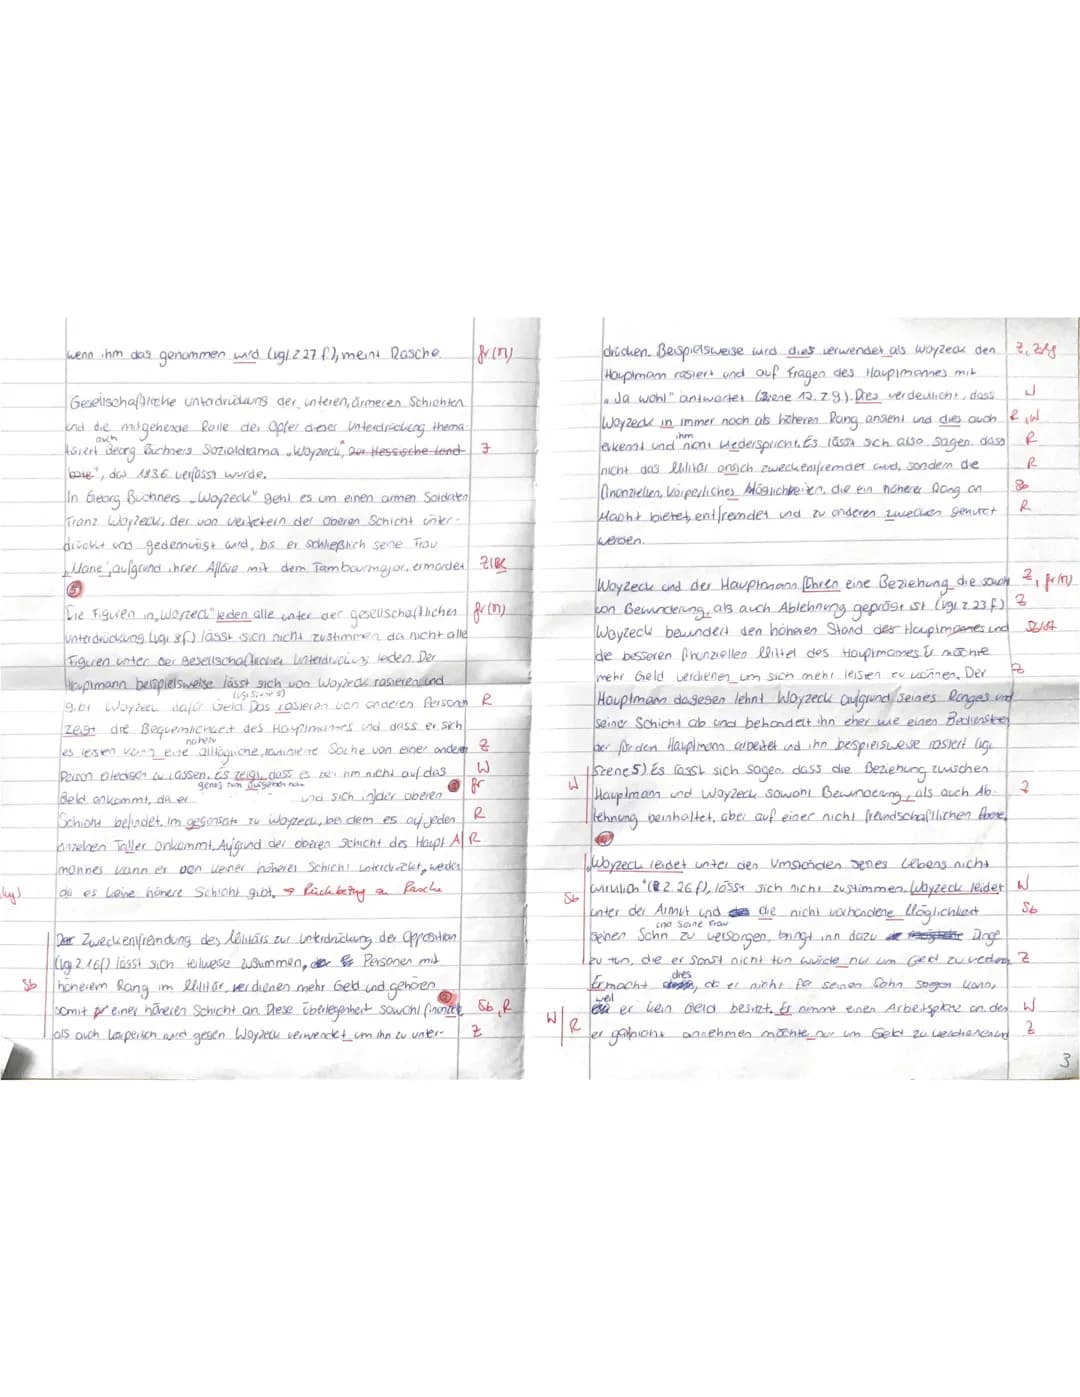 wenn ihm das genommen wird (vgl. Z 27 f.), meint Rasche.
fr (n)
Gesellschaftliche unterdrückung der unteren, ärmeren Schichten
und die mitgehende Rolle der Opfer dieser Unterdrückung thema-
auch
tisiert Georg Büchners Sozialdrama „Woyzeck", Der Hessische Land-
Z
bote", das 1836 verfasst wurde.
In Georg Büchners „Woyzeck" geht es um einen armen Soldaten
Franz Woyzeck, der von vertetern der Oberen Schicht unter-
drückt und gedemütigt wird, bis er schließlich seine Frau
„Marie", aufgrund ihrer Affäre mit dem Tambourmajor, ermordet
5
Die Figuren in „Woyzeck" leiden alle unter der gesellschaftlichen
fr (n)
Unterdrückung (vgl. 8f.) lässt sich nicht zustimmen da nicht alle
Figuren unter der gesellschaftlichen Unterdrückung leiden. Der
Hauptmann beispielsweise lässt sich von Woyzeck rasieren und
(vgl. Szene 5)
gibt Woyzeck dafür Geld. Das rasieren von anderen Personen
R
zeigt die Bequemlichkeit des Hauptmannes und dass er sich
nahezu
es leisten kann eine alltägliche, routinierte Sache von einer anderen
Z
Person erledigen zu lassen. Es zeigt, dass es bei ihm nicht auf das
W
genug zum ausgeben hat
Geld ankommt, da er und sich in der oberen
fr
Schicht befindet. Im gegensatz zu Woyzeck, bei dem es auf jeden
R
einzelnen Taller ankommt. Aufgrund der oberen Schicht des Haupt
A R
mannes kann er von keiner höheren Schicht unterdrückt, werden
da es keine höhere Schicht gibt. → Rückbezug zu Rasche
Der Zweckentfremdung des Militärs zur Unterdrückung der Opposition
(vgl. Z 16f) lässt sich teilweise zustimmen, Personen mit
höherem Rang im Militär, verdienen mehr Geld und gehören
Sb
somit einer höheren Schicht an. Diese überlegenheit sowohl finanziell
Sb, R
als auch körperlich wird gegen Woyzeck verwendet um ihn zu unter-
Z
drücken. Beispielsweise wird dies verwendet als Woyzeck den
Hauptmann rasiert und auf Fragen des Hauptmannes mit
„Ja wohl" antwortet (Szene 12. Z 9.). Dies verdeutlicht, dass
W
Woyzeck in immer noch als höheren Rang ansieht und dies auch
R, W
ihm
erkennt und nicht wiederspricht. Es lässt sich also sagen, dass
R
nicht das Militär ansich zweckenfremdet wird, sondern die
R
finanziellen, körperliches Möglichkeiten, die ein höherer Rang an
Sb
Macht bietet, entfremdet und zu anderen zwecken genutzt
R
werden.
Woyzeck und der Hauptmann führen eine Beziehung die sowohl
Z, fr (n)
von Bewunderung, als auch Ablehnung geprägt ist (vgl. Z. 23 f.)
Z
Woyzeck bewundert den höheren Stand des Hauptmannes und
die besseren finanziellen Mittel des Hauptmannes. Er möchte
mehr Geld verdienen um sich mehr leisten zu können. Der
Z
Hauptmann dagegen lehnt Woyzeck aufgrund seines Ranges und
seiner Schicht ab und behandelt ihn eher wie einen Bediensteten
der für den Hauptmann arbeitet und ihn bespielsweise rasiert (vgl.
Szene 5) Es lässt sich sagen, dass die Beziehung zwischen
W
Hauptmann und Woyzeck sowohl Bewunderung, als auch Ab-
Z
lehnung beinhaltet, aber auf einer nicht freundschaftlichen Ebene.
„Woyzeck leidet unter den Umständen seines Lebens nicht
wirklich" (Z. 26 f.), lässt sich nicht zustimmen. Woyzeck leidet
W
Sb
unter der Armut und die nicht vorhandene Möglichkeit
Sb
und seine Frau
seinen Sohn zu versorgen, bringt ihn dazu Dinge
zu tun, die er sonst nicht tun würde nur um Geld zu verdienen
Z
dies
Er macht , da er nicht für seinen Sohn sorgen kann,
weil
er kein Geld besitzt. Er nimmt einen Arbeitsplatz an den
W
W R
er garnicht annehmen möchte nur um Geld zu verdienen und
Z
3